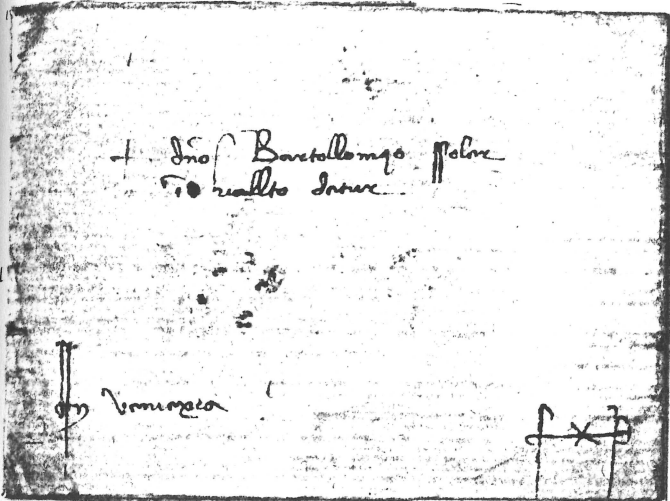 + dño Bartollomeo
In riallto detur
In Veniexia